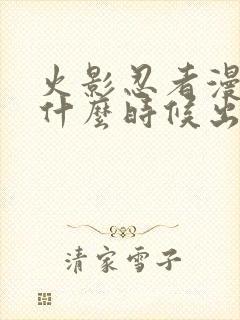 火影忍者漫
什麼時候出
清家雪子